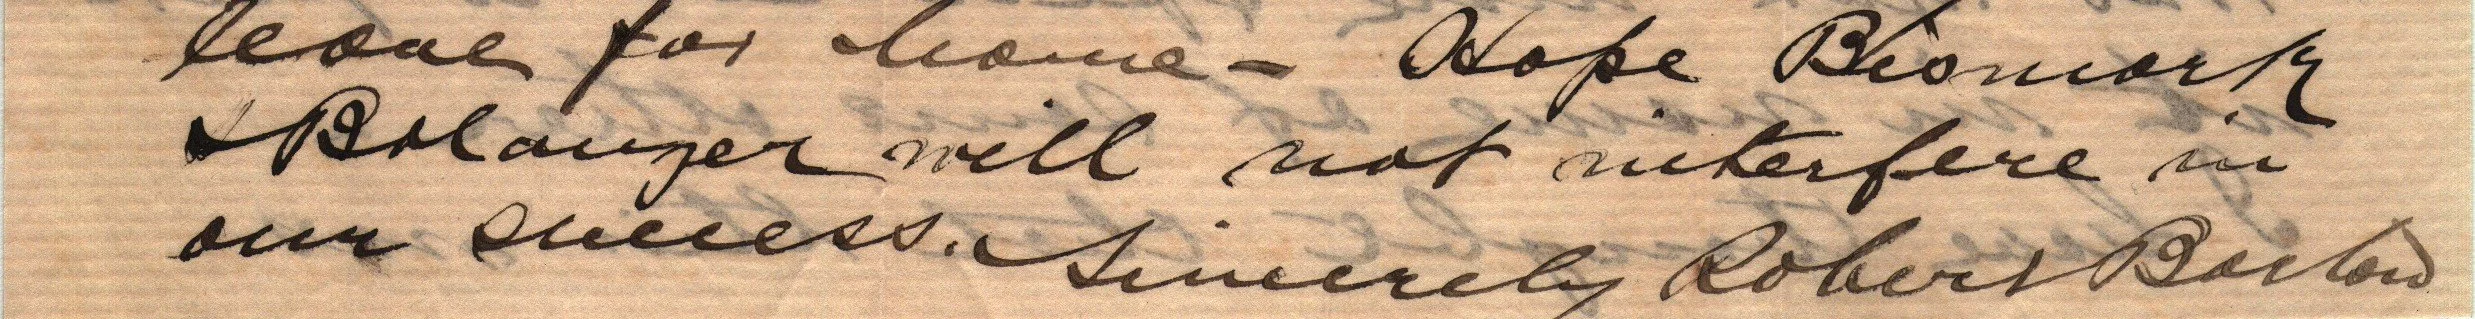 leave for home - Hope Bismark
& Bolanger will not interfere in
our success. Sincerely Robert Barton